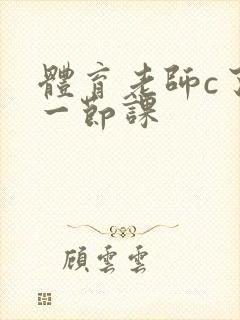 體育老師c了
一節課
顧雲雲